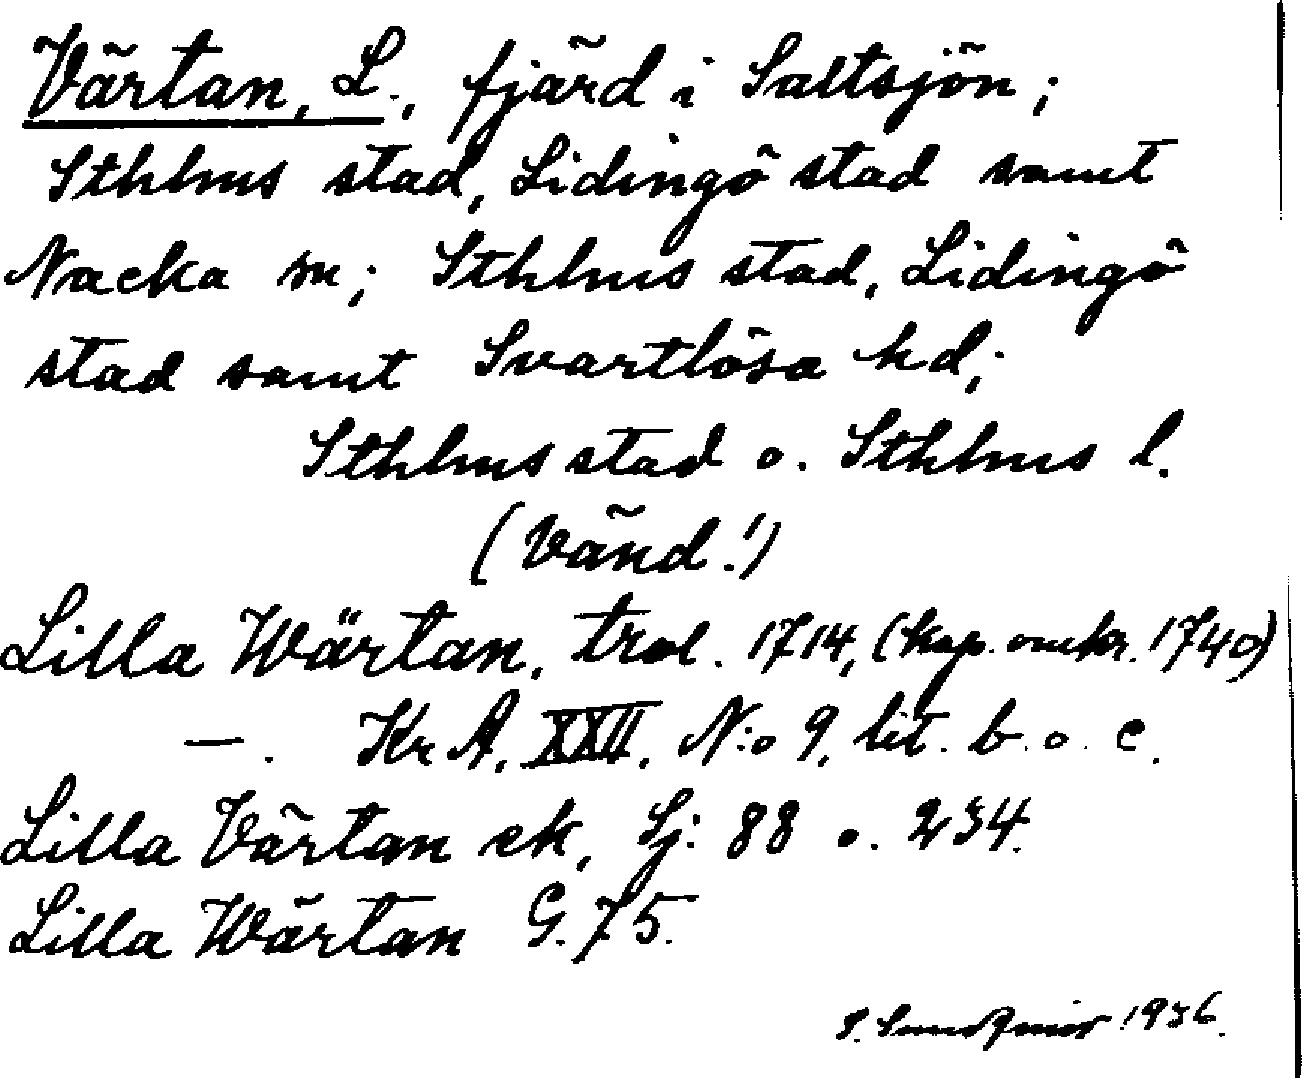 Värtan, L., fjärd i Saltsjön;
Sthlms stad, Lidingö stad samt
Nacka sn; Sthlms stad, Lidingö
stad samt Svartlösa hd;
Sthlms stad o. Sthlms l.
(Vänd!)
Lilla Wärtan, trol. 1714, (kop. omkr. 1740)
—. Kr A. XXII. N:o 9, lit. b. o. c.
Lilla Värtan ek, Sj: 88 o. 234.
Lilla Wärtan G. 75.
1936.